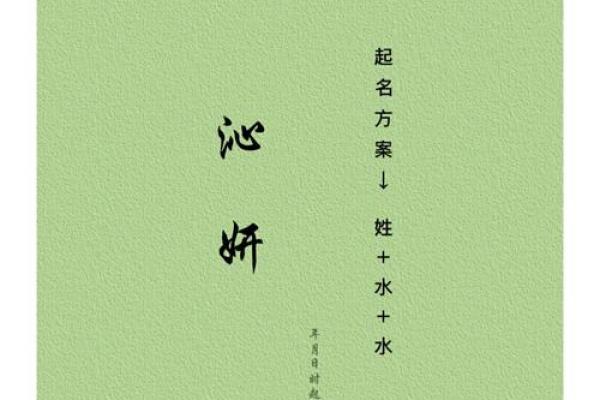 起名方案↓ 姓+水+水
沁妍
年月日时起